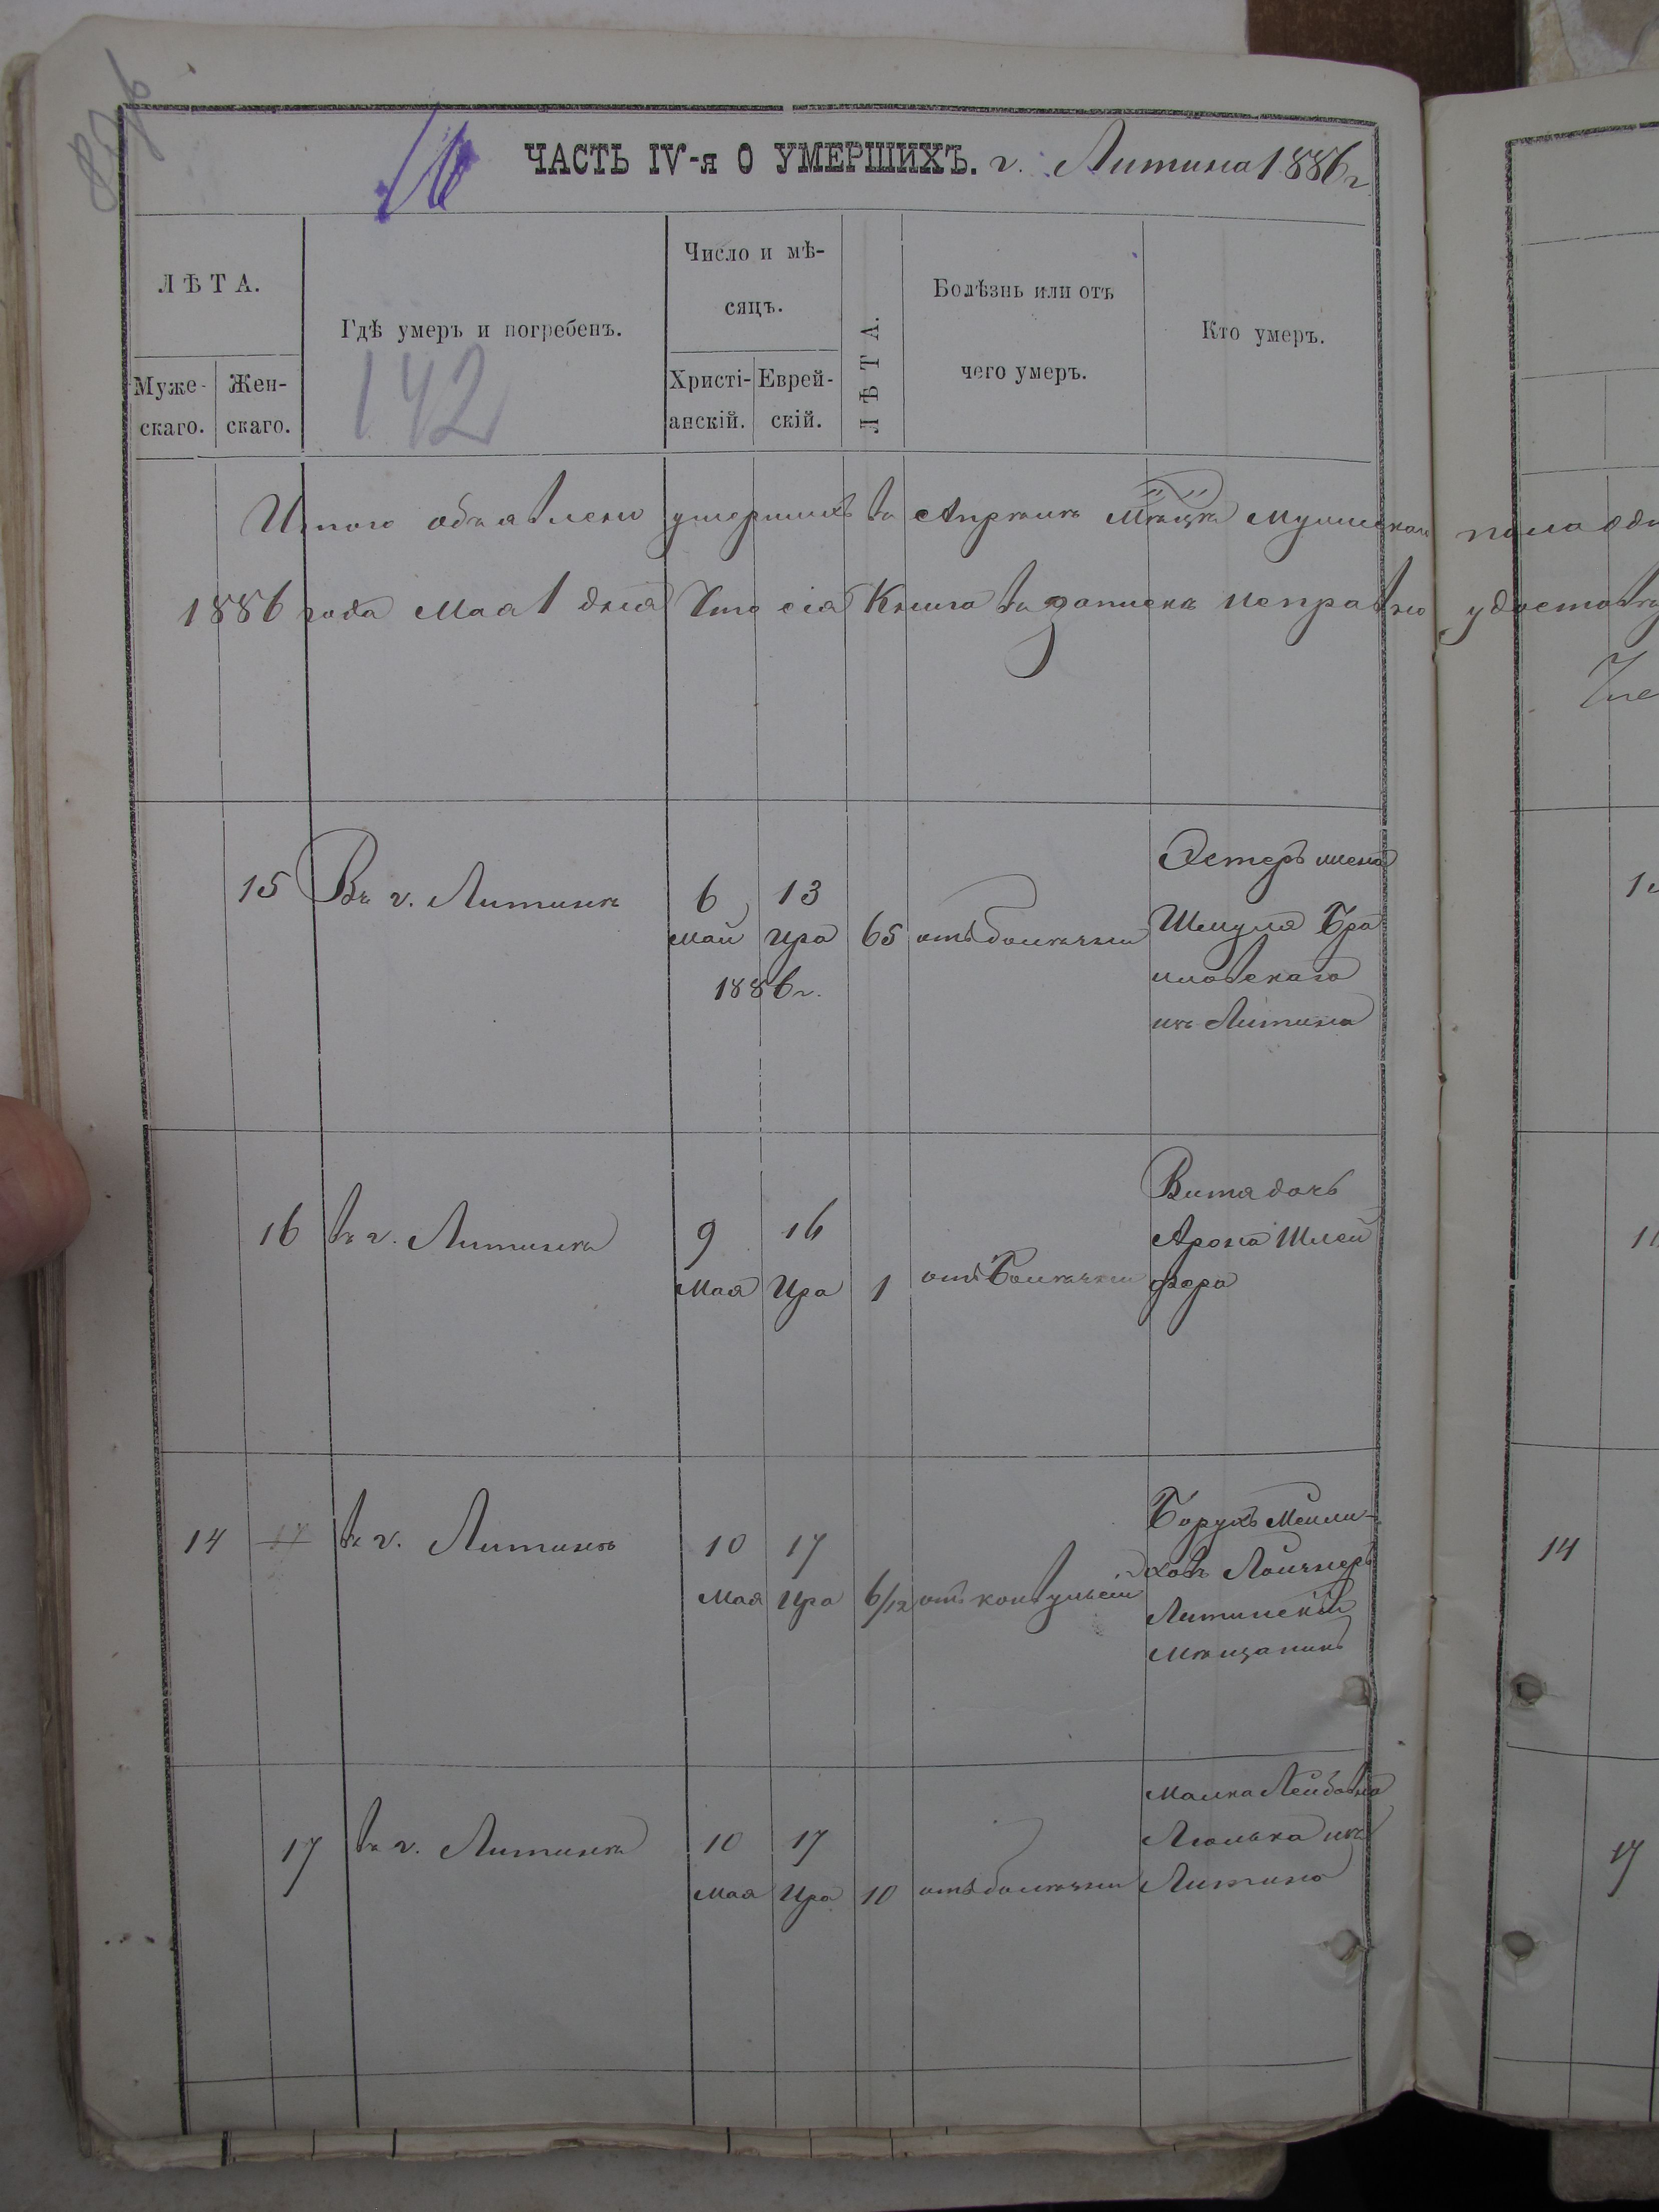 ЧАСТЬ IV-я О УМЕРШИХЪ. г. Литина 1886 г
ЛѢТА.
Гдѣ умеръ и погребенъ.
Число и мѣ-
сяцъ.
ЛѢТА.
Болѣзнь или отъ
чего умеръ.
Кто умеръ.
Муже-
скаго.
Жен-
скаго.
Христі-
анскій.
Еврей-
скій.
142
Итого объявлено умершихъ въ Апрѣлѣ Мѣсяцѣ Мужескаго пола
1886 года Мая 1 дня Что сія Книга въ записки исправно
15 Въ г. Литинѣ 6 13 Эстеръ жена
Май Ира 65 отъ болѣзни Шмуля Бра
1886 г. иловскаго
изъ Литина
16 въ г. Литинѣ 9 16 Витя дочь
Мая Ира 1 отъ болѣзни Арона Шлей
фера
14 17 въ г. Литинѣ 10 17 Борухъ Мейли-
Мая Ира 6/12 отъ конвульсіи ховъ
Литинскій
Мѣщанинъ
17 въ г. Литинѣ 10 17 Малка Лейбовна
Мая Ира 10 отъ болѣзни Люлька изъ
Литина
14
17